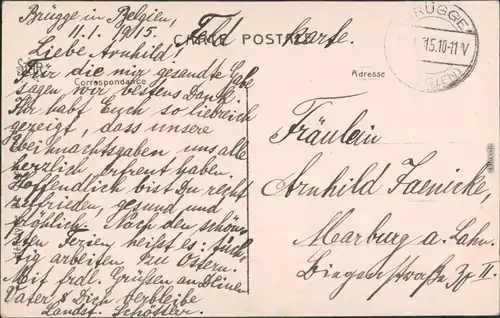 Brügge in Belgien,
11.1.1915.
Liebe Arnhild.
Für die mir gesandte Gabe
sagen wir bestens Dank.
Ihr habt Euch so liebreich
gezeigt, dass unsere
Weihnachtsgaben uns alle
herzlich erfreut haben.
Hoffendlich bist Du recht
zufrieden, gesund und
fröhlich. Nach den schön-
sten Ferien heisst es: tüch-
tig arbeiten zu Ostern.
Mit frdl. Grüssen an Deinen
Vater & Dich verbleibe
Landst. Schöttler.
Feldkarte.
CARTE POSTALE
Correspondance
Adresse
BRÜGGE
15.10-11V
Fräulein
Arnhild Jaenicke,
Marburg a. Lahn.
Biegenstraße II